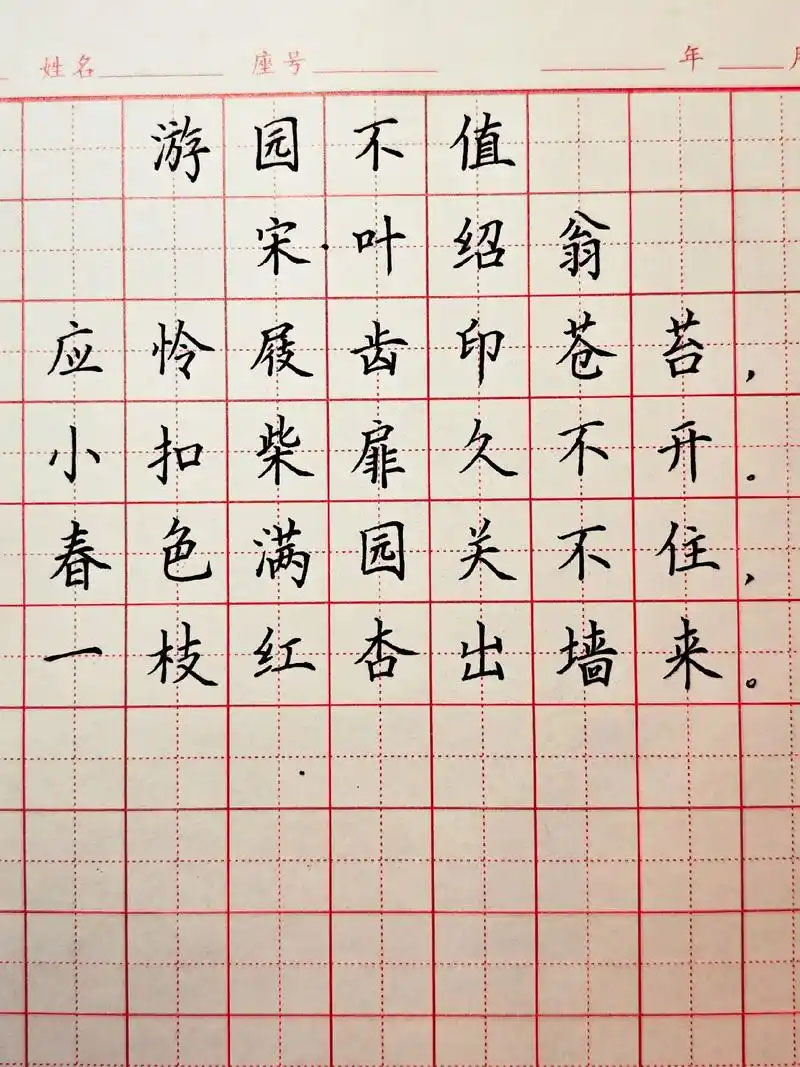 姓名 座号 年 月
游园不值
宋·叶绍翁
应怜屐齿印苍苔，
小扣柴扉久不开。
春色满园关不住，
一枝红杏出墙来。